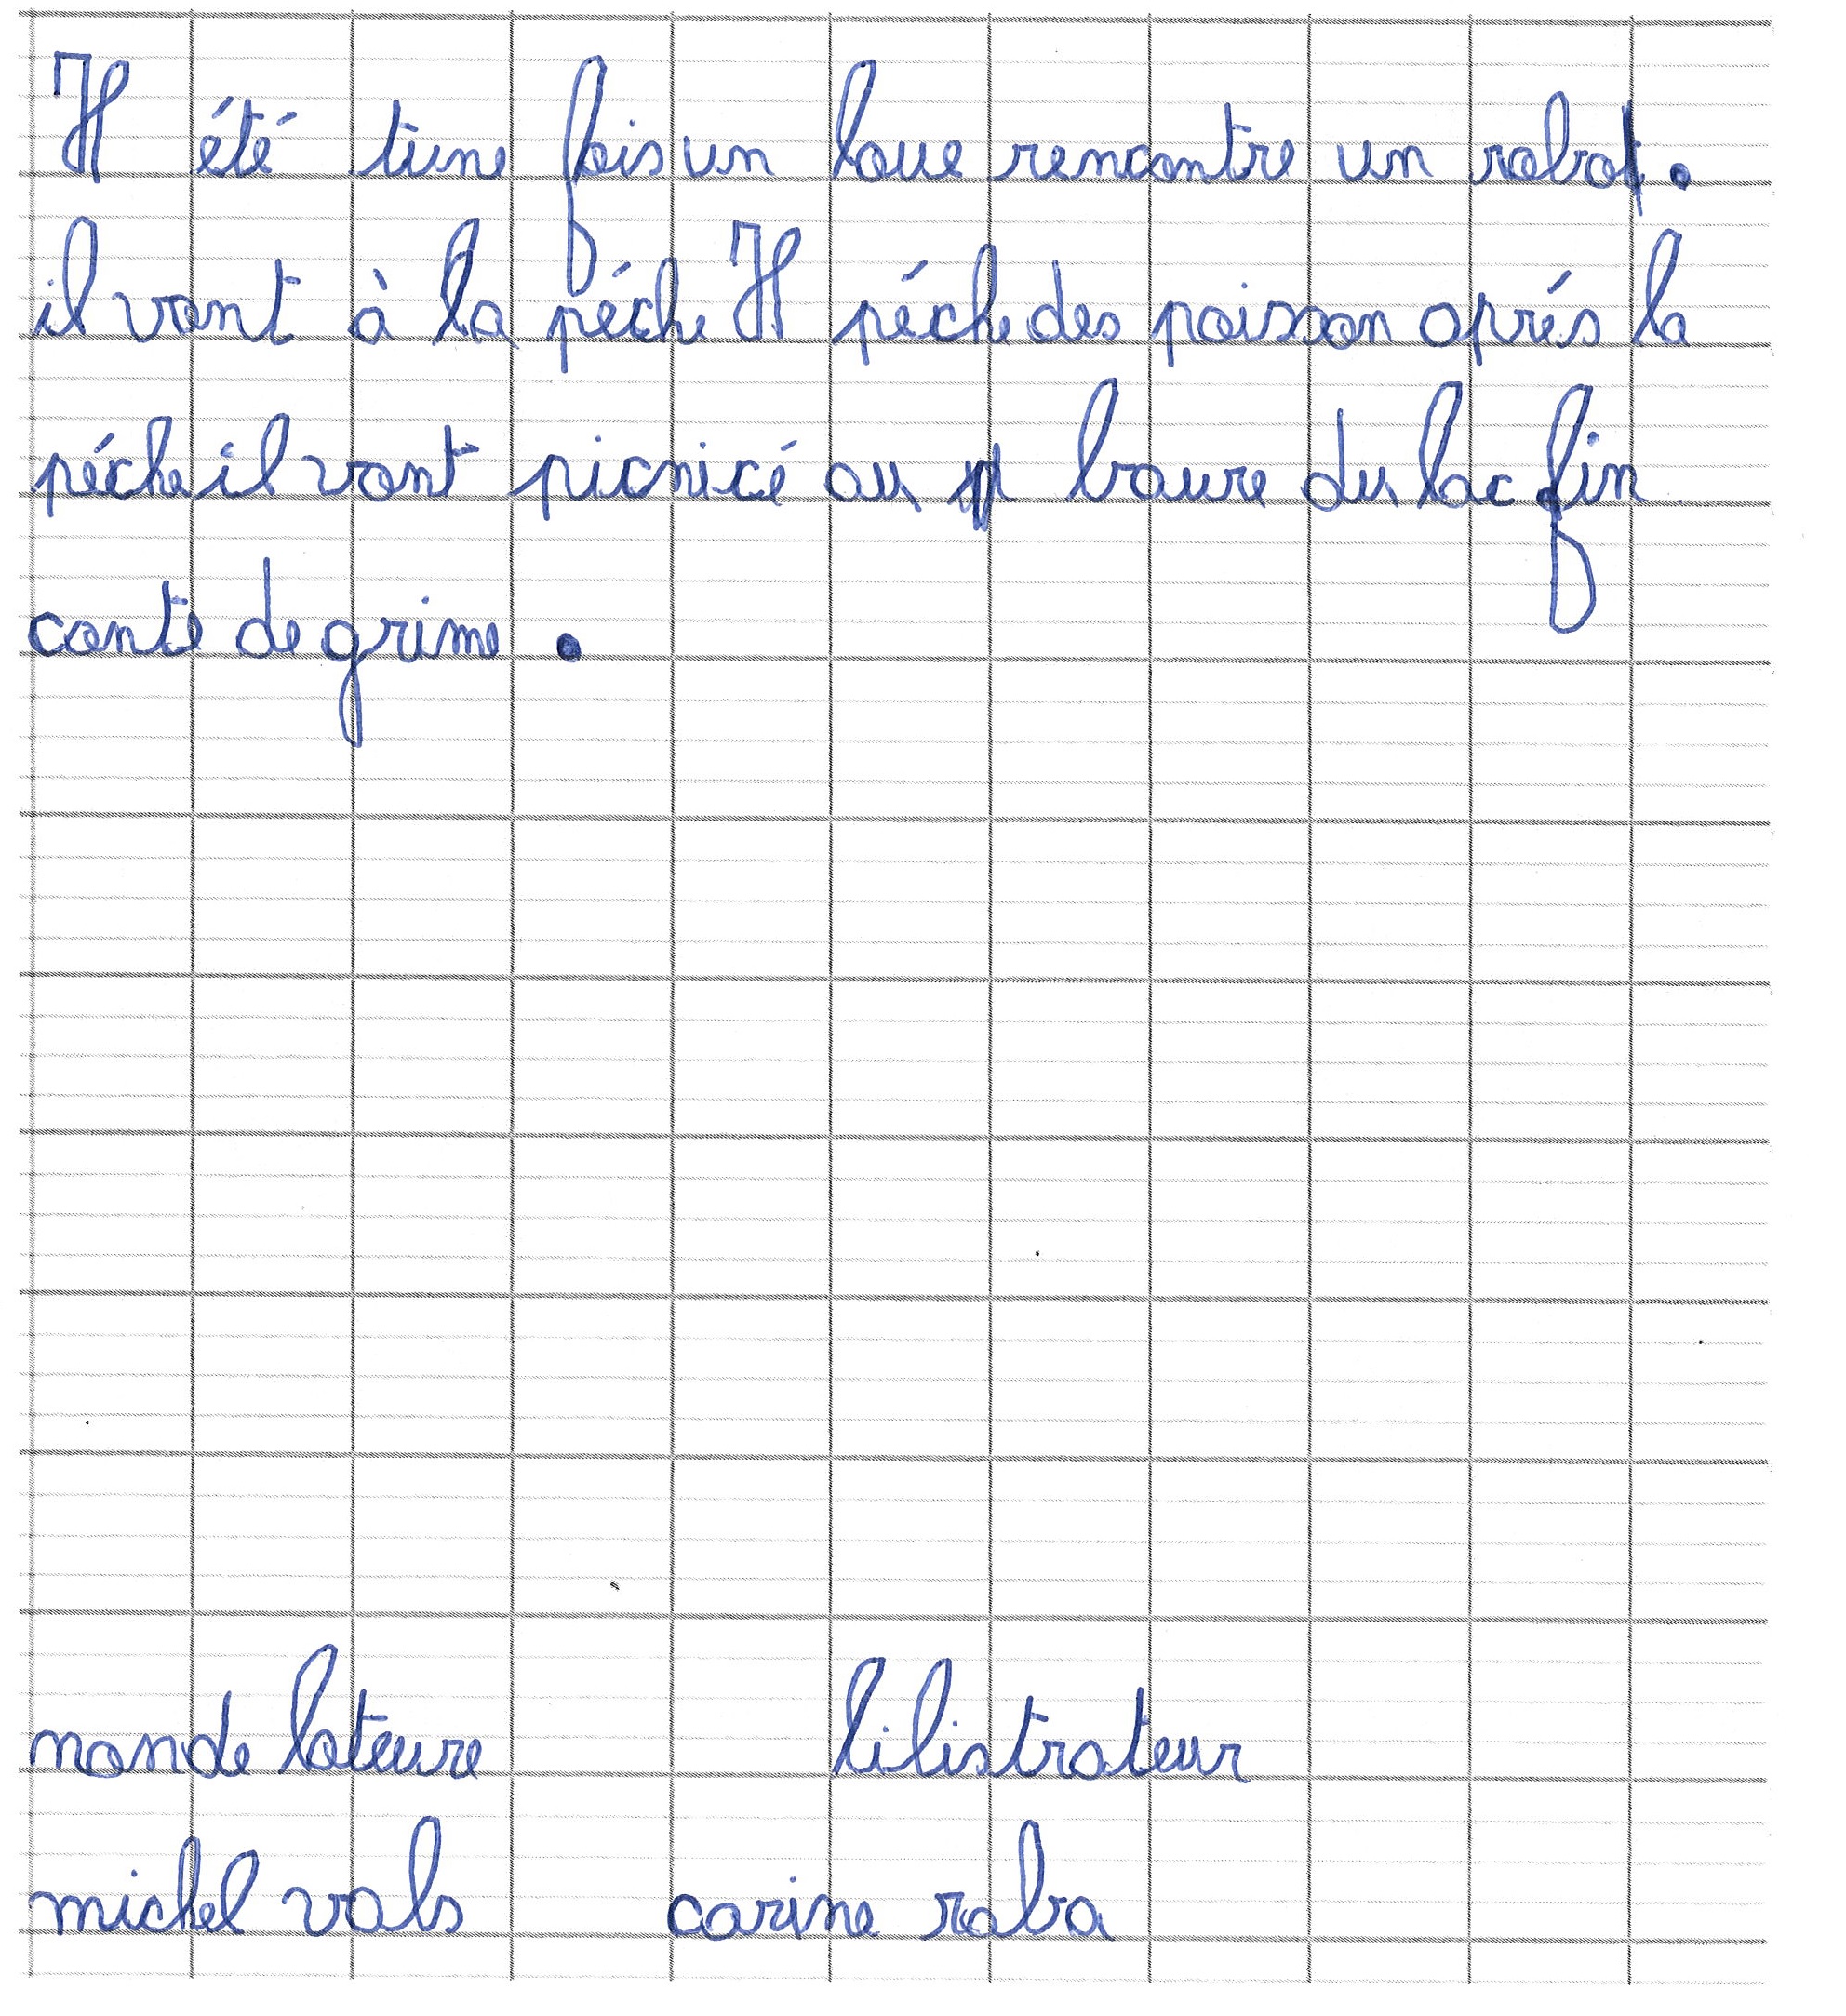 Il été tune fois un loue rencontre un robot.
il vont à la péche Il péche des poisson aprés la
péche il vont picnicé au boure du lac fin
conte de grime.
nonde lateure lilistrateur
michel vals carine raba